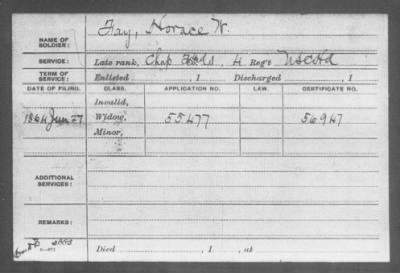 NAME OF SOLDIER: Fay, Horace W.
SERVICE: Late rank, Chap 4 Reg't
TERM OF SERVICE: Enlisted , 1 Discharged , 1
DATE OF FILING. CLASS. APPLICATION NO. LAW. CERTIFICATE NO.
Invalid,
1864 Jun 27 Widow, 55477 56947
Minor,
ADDITIONAL SERVICES:
REMARKS:
Died , 1 , at